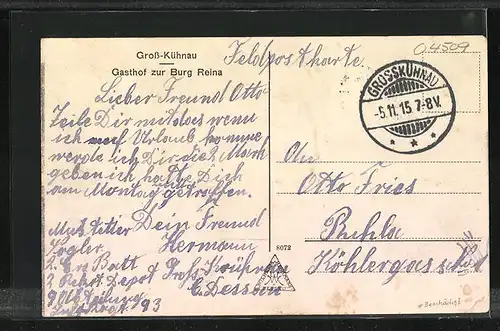 Groß-Kühnau
Gasthof zur Burg Reina
Feldpostkarte
04509
GROSSKÜHNAU
-5.11.15.7-8V.
* * *
Lieber Freund Otto
Teile Dir mit das wenn
ich auf Urlaub komme
werde ich Dir die Mark
geben ich hatte Dich
am Montag getroffen.
Dein Freund
Hermann
Musketier
2. Ers Batt
2 Rekrt Depot Groß-Kühnau
b. Dessau
93
8072
An
Otto Fries
Ruhla
Köhlergasse
*Beschädigt